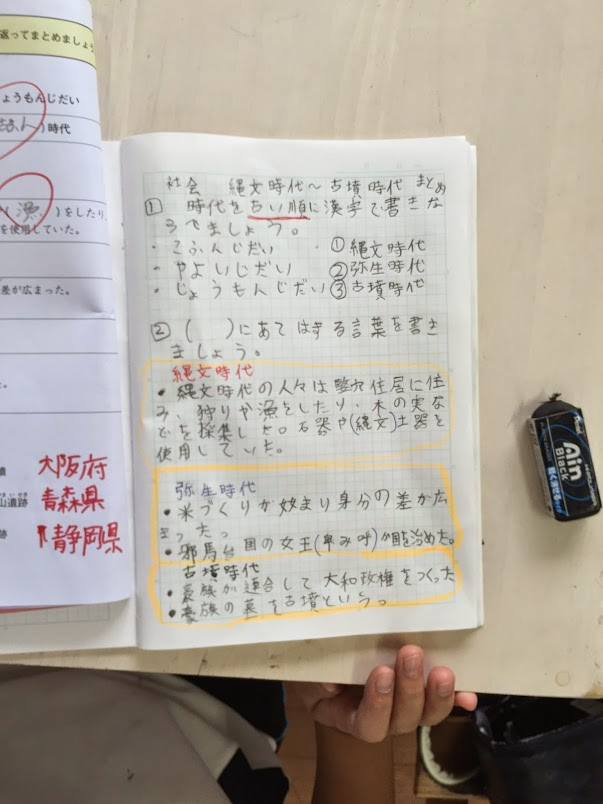 返ってまとめましょう
ょうもんじだい
時代
(漁)をしたり
を使用していた。
差が広まった。
大阪府
山遺跡 青森県
跡 静岡県
社会 縄文時代～古墳時代 まとめ
① 時代を古い順に漢字で書きな
らべましょう。
・こふんじだい ①縄文時代
・やよいじだい ②弥生時代
・じょうもんじだい ③古墳時代
② ( )にあてはまる言葉を書き
ましょう。
縄文時代
・縄文時代の人々は竪穴住居に住
み、狩りや漁をしたり、木の実な
どを採集した。石器や(縄文)土器を
使用していた。
弥生時代
・米づくりが始まり身分の差が広
まった。
・邪馬台国の女王(卑み呼)が国を治めた。
古墳時代
・豪族が連合して大和政権をつくった
・豪族の墓を古墳という。
Ain
Black